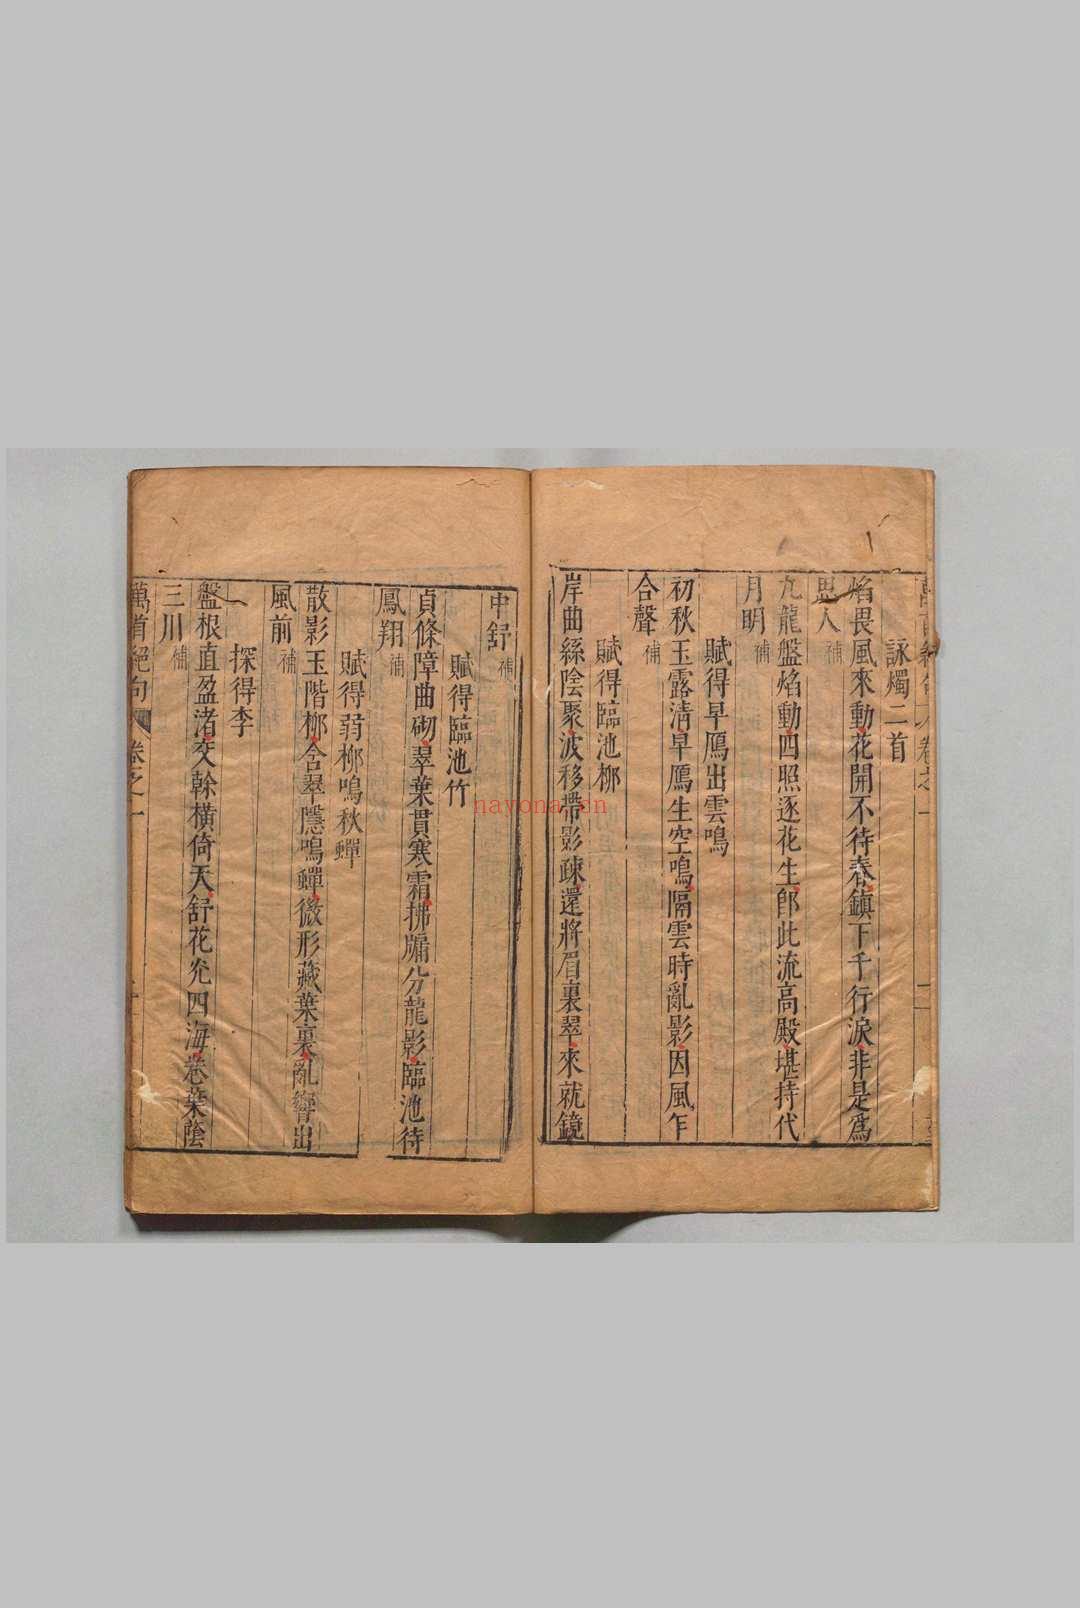 詠燭二首
焰畏風來動花開不待春鎮下千行淚非是為
思人補
九龍盤焰動四照逐花生即此流高殿堪持代
月明補
賦得早鴈出雲鳴
初秋玉露清早鴈生空鳴隔雲時亂影因風乍
合聲補
賦得臨池柳
岸曲絲陰聚波移帶影疎還將眉裏翠來就鏡
中舒補
賦得臨池竹
貞條障曲砌翠葉貫寒霜拂牖分龍影臨池待
鳳翔補
賦得弱柳鳴秋蟬
散影玉階柳含翠隱鳴蟬微形藏葉裏亂響出
風前補
探得李
盤根直盈渚交榦橫倚天舒花光四海卷葉蔭
三川補
萬首絕句 卷之一
nayona.cn